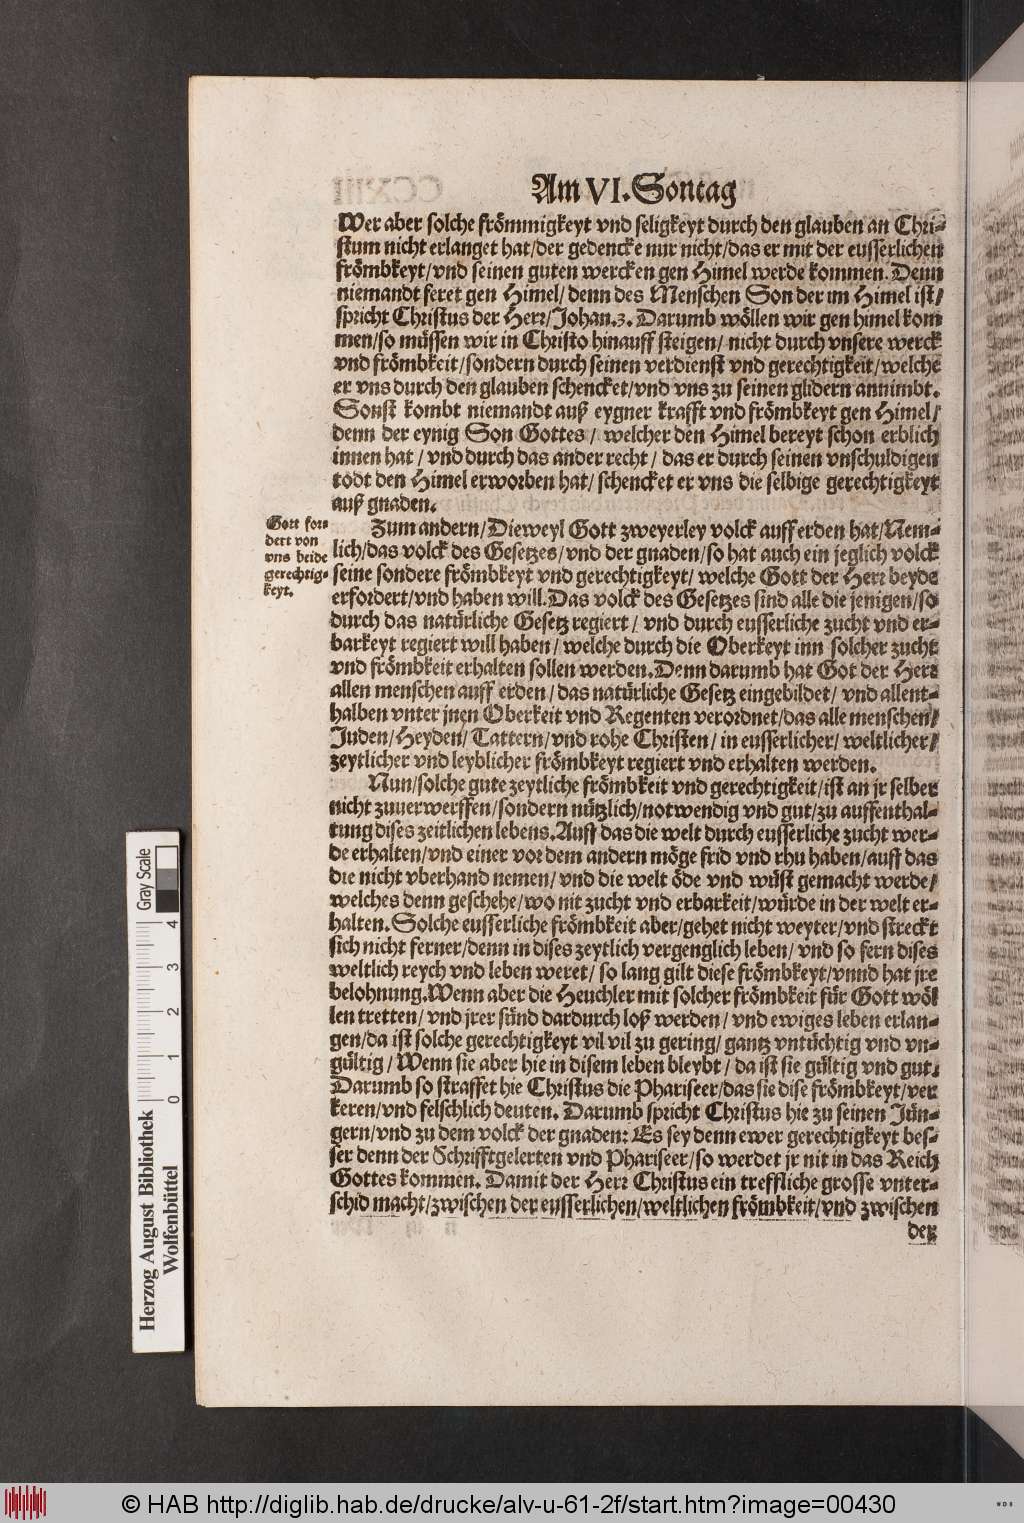 Am VI. Sontag
Wer aber solche frömmigkeyt vnd seligkeyt durch den glauben an Chri-
stum nicht erlanget hat/der gedencke nur nicht/das er mit der eusserlichen
frömbkeyt/vnd seinen guten wercken gen Himel werde kommen. Denn
niemandt feret gen Himel/ denn des Menschen Son der im Himel ist/
spricht Christus der Herr/Johan.3. Darumb wöllen wir gen himel kom
men/so müssen wir in Christo hinauff steigen/ nicht durch vnsere werck
vnd frömbkeit/sondern durch seinen verdienst vnd gerechtigkeit/welche
er vns durch den glauben schencket/vnd vns zu seinen glidern annimbt.
Sonst kombt niemandt auß eygner krafft vnd frömbkeyt gen Himel/
denn der eynig Son Gottes/ welcher den Himel bereyt schon erblich
innen hat/ vnd durch das ander recht/ das er durch seinen vnschuldigen
todt den Himel erworben hat/ schencket er vns die selbige gerechtigkeyt
auß gnaden.
Gott for-
dert von
vns beide
gerechtig-
keyt.
Zum andern/Dieweyl Gott zweyerley volck auff erden hat/Nem-
lich/das volck des Gesetzes/vnd der gnaden/so hat auch ein jeglich volck
seine sondere frömbkeyt vnd gerechtigkeyt/ welche Gott der Herr beyde
erfordert/vnd haben will. Das volck des Gesetzes sind alle die jenigen/so
durch das natürliche Gesetz regiert/ vnd durch eusserliche zucht vnd er-
barkeyt regiert will haben/ welche durch die Oberkeyt inn solcher zucht
vnd frömbkeit erhalten sollen werden. Denn darumb hat Got der Herr
allen menschen auff erden/ das natürliche Gesetz eingebildet/ vnd allent-
halben vnter jnen Oberkeit vnd Regenten verordnet/das alle menschen/
Juden/Heyden/ Tattern/vnd rohe Christen/ in eusserlicher/ weltlicher/
zeytlicher vnd leyblicher frömbkeyt regiert vnd erhalten werden.
Nun/solche gute zeytliche frömbkeit vnd gerechtigkeit/ist an jr selber
nicht zuuerwerffen/sondern nützlich/notwendig vnd gut/zu auffenthal-
tung dises zeitlichen lebens. Auff das die welt durch eusserliche zucht wer-
de erhalten/vnd einer vor dem andern möge frid vnd rhu haben/auff das
die nicht vberhand nemen/ vnd die welt öde vnd wüst gemacht werde/
welches denn geschehe/wo nit zucht vnd erbarkeit/würde in der welt er-
halten. Solche eusserliche frömbkeit aber/gehet nicht weyter/vnd streckt
sich nicht ferner/denn in dises zeytlich vergenglich leben/ vnd so fern dises
weltlich reych vnd leben weret/ so lang gilt diese frömbkeyt/vnnd hat jre
belohnung. Wenn aber die Heuchler mit solcher frömbkeit für Gott wöl
len tretten/ vnd jrer sünd dardurch loß werden/ vnd ewiges leben erlan-
gen/da ist solche gerechtigkeyt vil vil zu gering/ gantz vntüchtig vnd vn-
gültig/ Wenn sie aber hie in disem leben bleybt/ da ist sie gültig vnd gut.
Darumb so straffet hie Christus die Phariseer/das sie dise frömbkeyt/ver
keren/vnd felschlich deuten. Darumb spricht Christus hie zu seinen Jün-
gern/vnd zu dem volck der gnaden: Es sey denn ewer gerechtigkeyt bes-
ser denn der Schrifftgelerten vnd Phariseer/so werdet jr nit in das Reich
Gottes kommen. Damit der Herr Christus ein treffliche grosse vnter-
schid macht/zwischen der eusserlichen/weltlichen frömbkeit/vnd zwischen
der
Herzog August Bibliothek
Wolfenbüttel
0 1 2 3 4
Gray Scale
© HAB http://diglib.hab.de/drucke/alv-u-61-2f/start.htm?image=00430